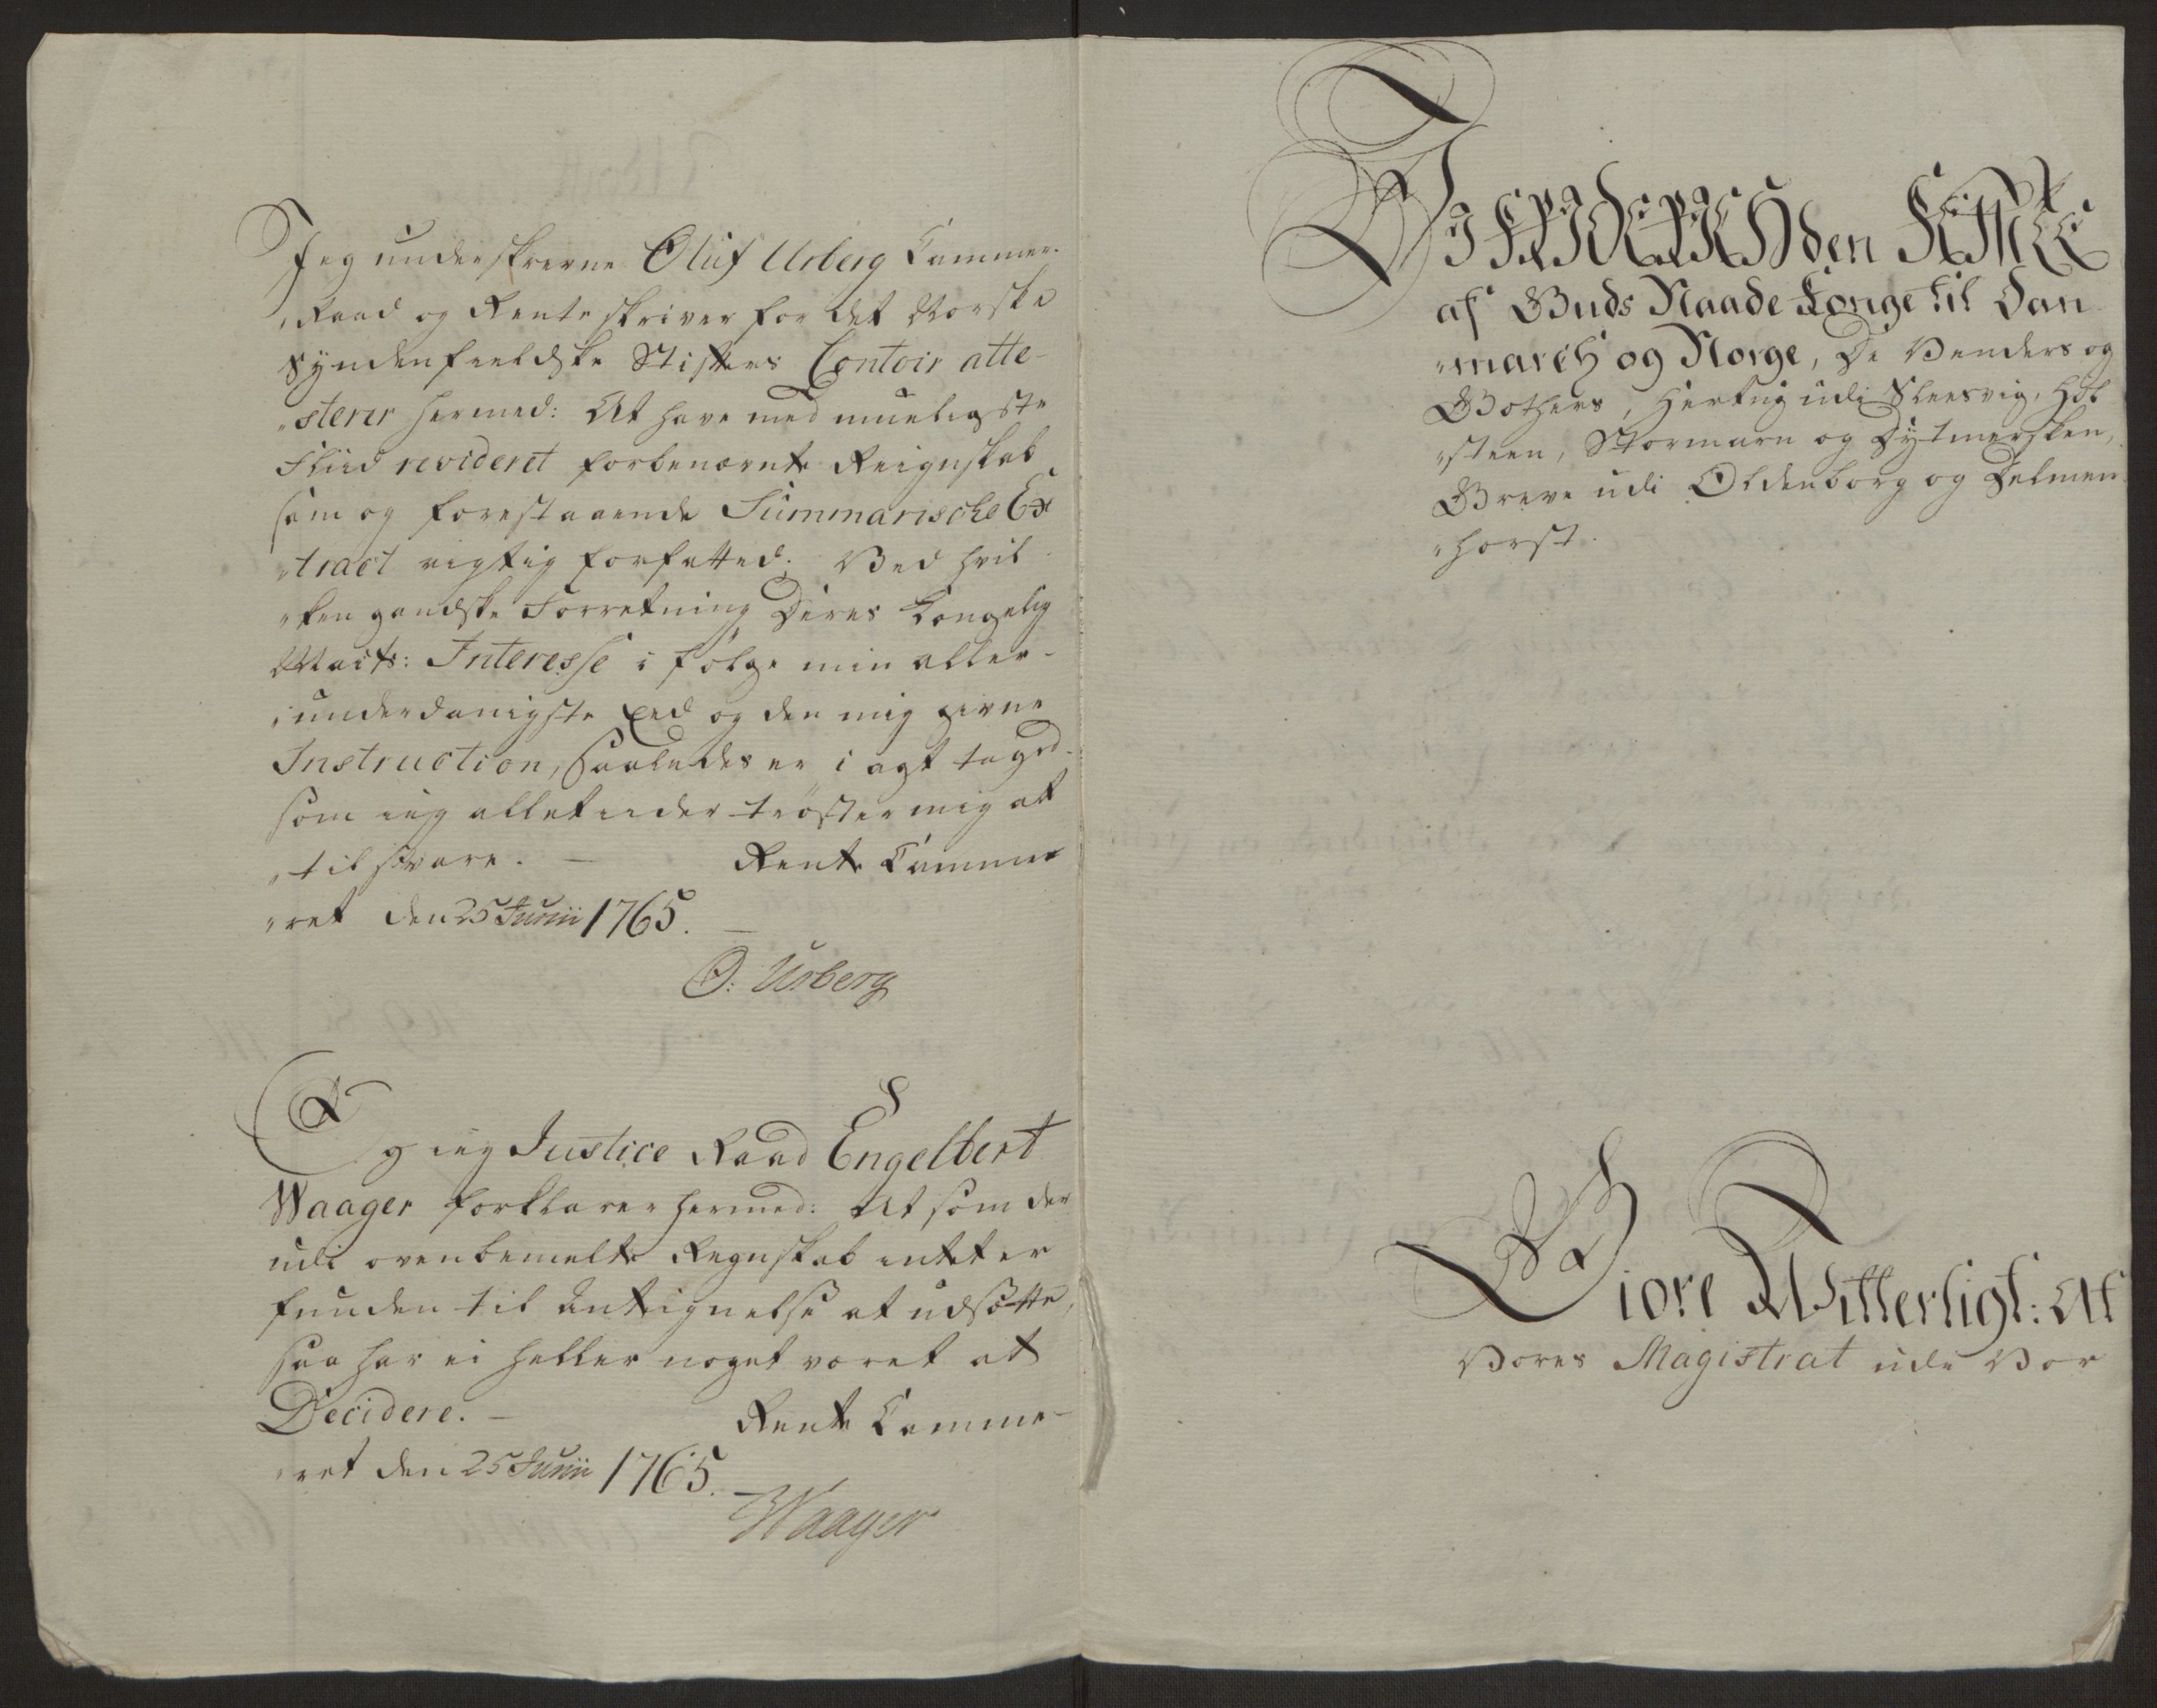 Jeg underskrevne Oluf Urberg Cammer-
"Raad og Renteskriver for det Norske
Syndenfieldske Stifters Contoir atte-
"sterer hermed: At have med mueligste
Fliid revideret forbenævnte Reignskab
som og forestaaende Summarische Ex
"tract rigtig forfatted; Ved hvil
"ken gandske Forretning Deres Kongelig
Maits: Interesse i følge min aller-
"underdanigste Eed og den mig givne
Instruction, saaledes er i agt taged
som ieg alletiider trøster mig at
"til svare. — Rente Camme
"ret den 25 Junii 1765. —
O: Urberg
Og ieg Justice Raad Engelbert
Waager forklarer hermed: At som der
udi ovenbemelte Regnskab intet er
funden til Antegnelse at udsætte,
saa har ei heller noget været at
Decidere. — Rente Camme-
"ret den 25 Junii 1765. —
Waager
Wi FRIDERICH den FEMTE
af Guds Naade Konge til Dan
"march og Norge, De Venders og
Gothers, Hertug udi Slesvig, Hol
"steen, Stormarn og Dytmersken,
Greve udi Oldenborg og Delmen
"horst.
Giøre Witterligt: At
Vores Magistrat udi Vor